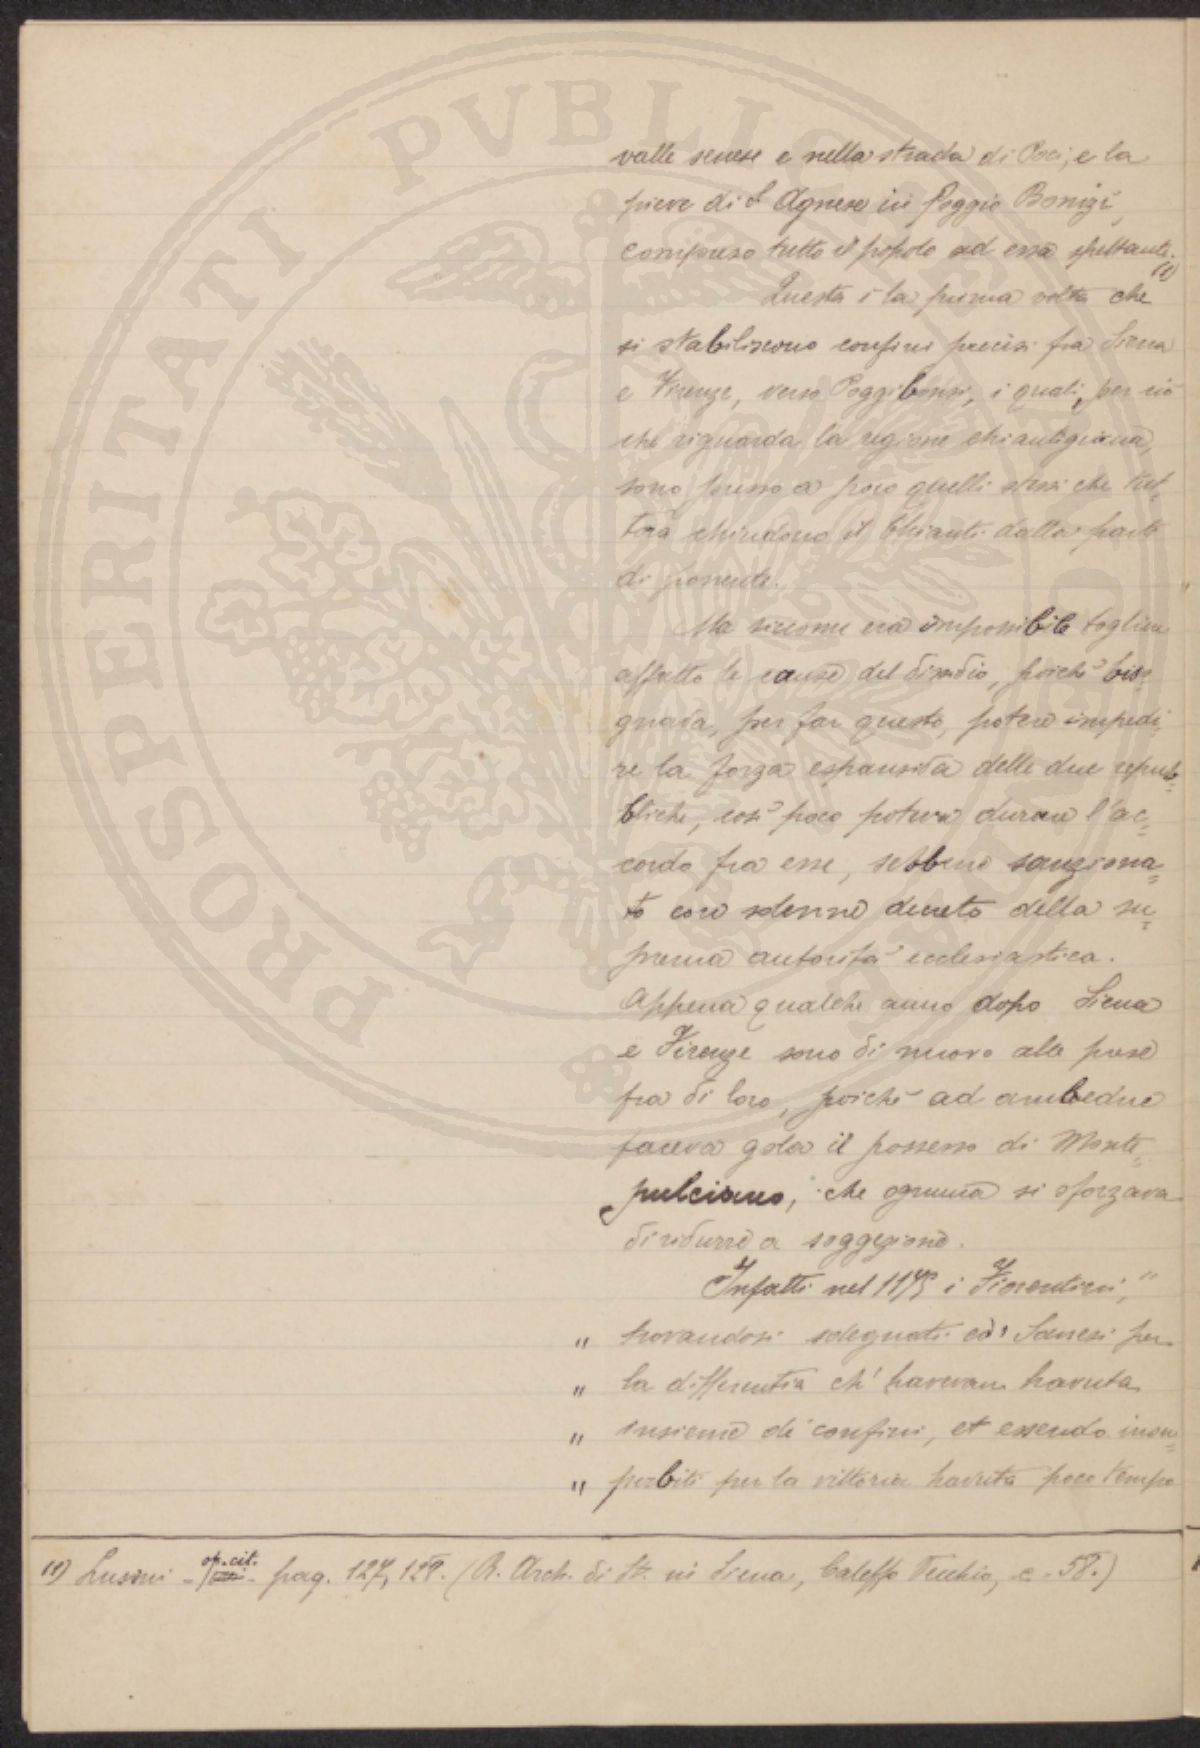 PROSPERITATI PVBLICAE
valle senese e nella strada di Poci; e la
pieve di S. Agnese in Poggio Bonizi,
compreso tutto il popolo ad essa spettante. (1)
Questa è la prima volta che
si stabiliscono confini precisi fra Siena
e Firenze, verso Poggibonsi, i quali, per ciò
che riguarda la regione chiantigiana,
sono presso a poco quelli stessi che tut-
tora chiudono il Chianti dalla parte
di ponente.
Ma siccome era impossibile togliere
affatto le cause del dissidio, poichè biso-
gnava, per far questo, potere impedi-
re la forza espansiva delle due repub-
bliche, così poco poteva durare l'ac-
cordo fra esse, sebbene sanziona-
to con solenne decreto della su-
prema autorità ecclesiastica.
Appena qualche anno dopo Siena
e Firenze sono di nuovo alle prese
fra di loro, poichè ad ambedue
faceva gola il possesso di Monte-
pulciano, che ognuna si sforzava
di ridurre a soggezione.
Infatti nel 1175 i Fiorentini, "
" trovandosi sdegnati co' Sanesi per
" la differentia ch' havevan havuta
" insieme de' confini, et essendo insu-
" perbiti per la vittoria havuta poco tempo
(1) Lusini - op. cit. - pag. 127, 129. (R. Arch. di St. in Siena, Caleffo Vecchio, c. 58.)